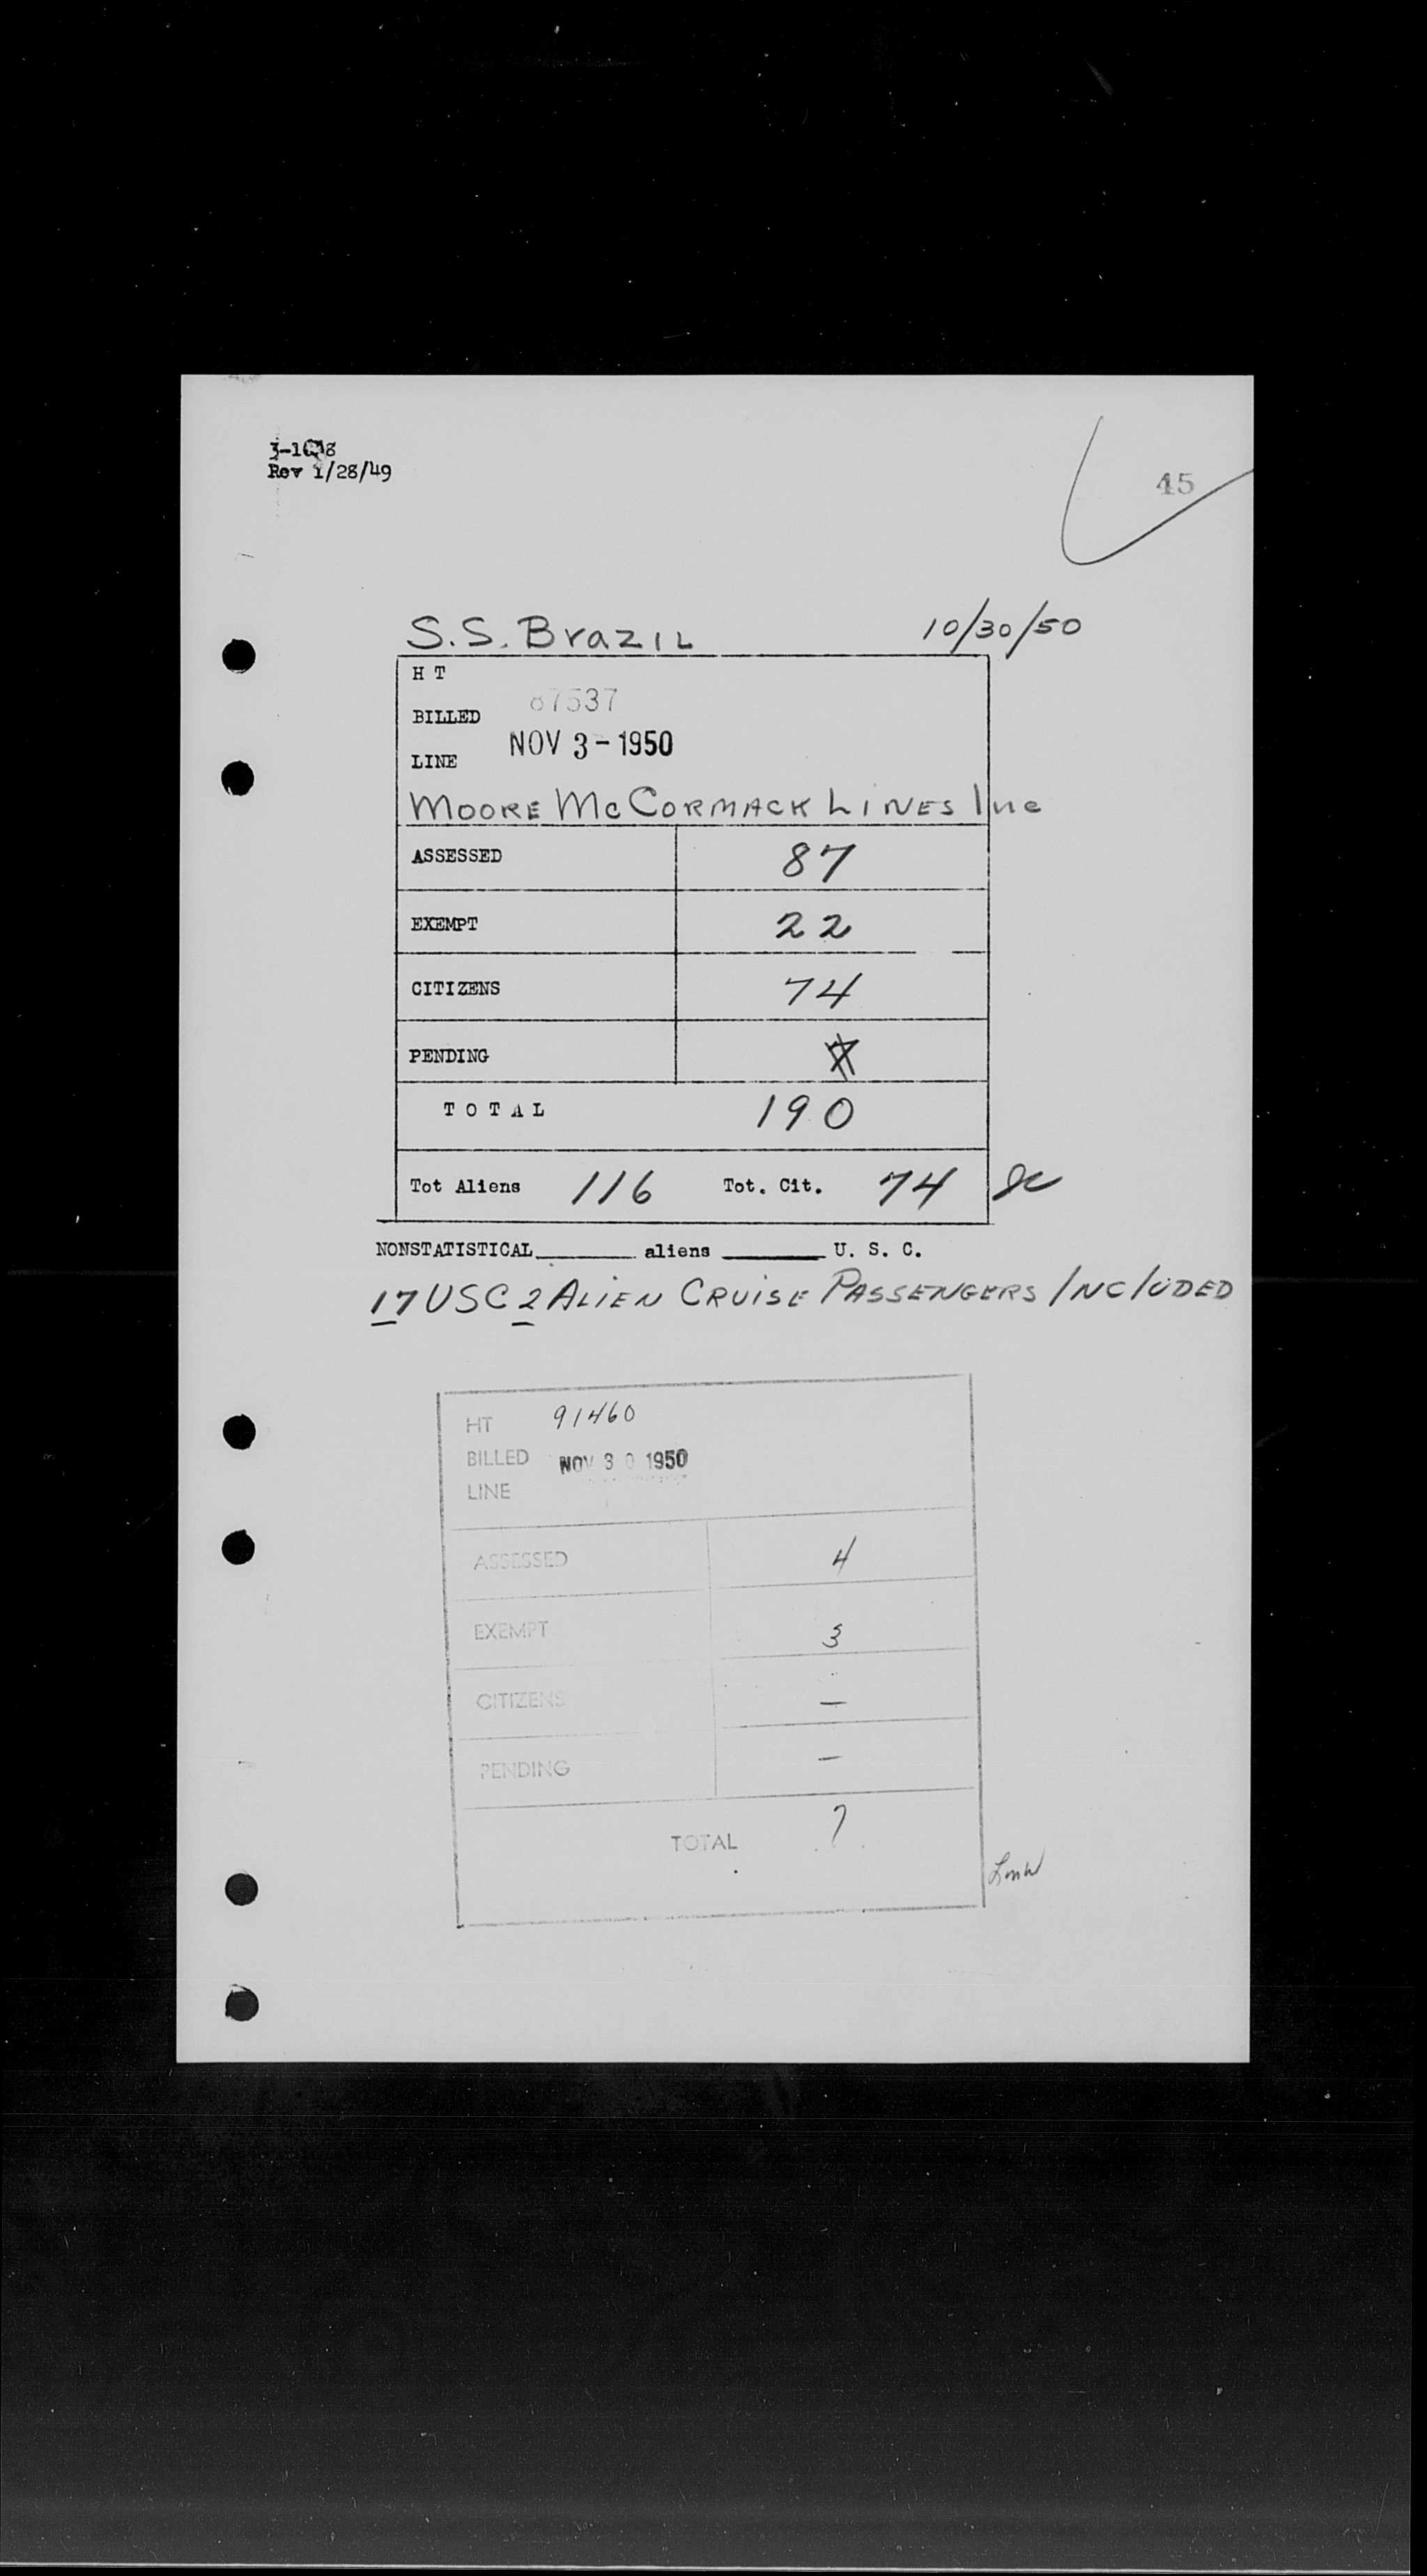 Rev 1/28/49
45
S.S. Brazil 10/30/50
H T
87537
BILLED
NOV 3 - 1950
LINE
Moore McCormack Lines Inc
ASSESSED 87
EXEMPT 22
CITIZENS 74
PENDING 7
T O T A L 190
Tot Aliens 116 Tot. Cit. 74
NONSTATISTICAL________ aliens ________ U. S. C.
17 USC 2 Alien Cruise Passengers Included
HT 91460
BILLED NOV 3 0 1950
LINE
ASSESSED 4
EXEMPT 3
CITIZENS —
PENDING —
TOTAL 7